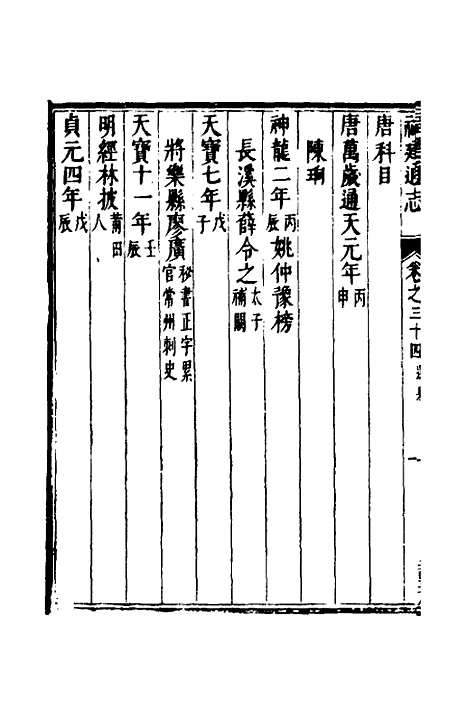 福建通志 卷之三十四 選舉 一
唐科目
唐萬歲通天元年丙申
陳珦
神龍二年丙辰姚仲豫榜
長溪縣薛令之太子補闕
天寶七年戊子
將樂縣廖廣秘書正字累官常州刺史
天寶十一年壬辰
明經林披莆田人
貞元四年戊辰